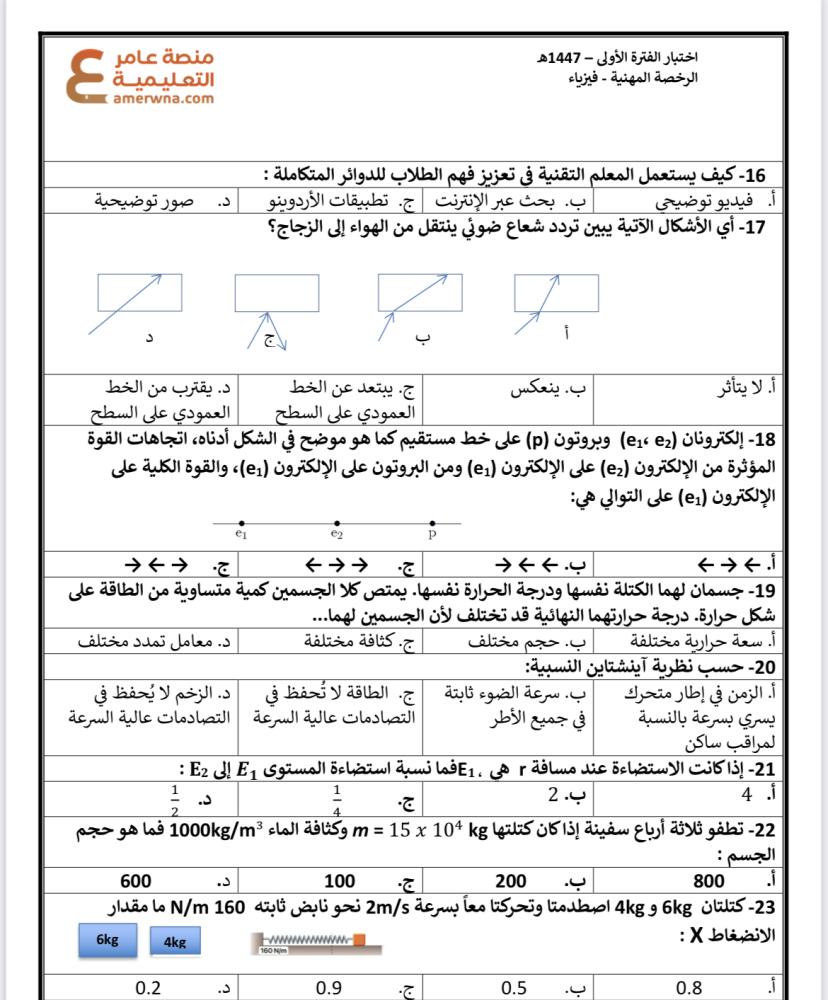 منصة عامر
التعليمية
amerwna.com
اختبار الفترة الأولى – 1447هـ
الرخصة المهنية - فيزياء
16- كيف يستعمل المعلم التقنية في تعزيز فهم الطلاب للدوائر المتكاملة :
أ. فيديو توضيحي ب. بحث عبر الإنترنت ج. تطبيقات الأردوينو د. صور توضيحية
17- أي الأشكال الآتية يبين تردد شعاع ضوئي ينتقل من الهواء إلى الزجاج؟
أ ب ج د
أ. لا يتأثر ب. ينعكس ج. يبتعد عن الخط د. يقترب من الخط
العمودي على السطح العمودي على السطح
18- إلكترونان (e₁، e₂) وبروتون (p) على خط مستقيم كما هو موضح في الشكل أدناه، اتجاهات القوة
المؤثرة من الإلكترون (e₂) على الإلكترون (e₁) ومن البروتون على الإلكترون (e₁)، والقوة الكلية على
الإلكترون (e₁) على التوالي هي:
e₁ e₂ p
أ. ← → ← ب. → ← ← ج. ← → → ج. → ← →
19- جسمان لهما الكتلة نفسها ودرجة الحرارة نفسها. يمتص كلا الجسمين كمية متساوية من الطاقة على
شكل حرارة. درجة حرارتهما النهائية قد تختلف لأن الجسمين لهما...
أ. سعة حرارية مختلفة ب. حجم مختلف ج. كثافة مختلفة د. معامل تمدد مختلف
20- حسب نظرية آينشتاين النسبية:
أ. الزمن في إطار متحرك ب. سرعة الضوء ثابتة ج. الطاقة لا تُحفظ في د. الزخم لا يُحفظ في
يسري بسرعة بالنسبة في جميع الأطر التصادمات عالية السرعة التصادمات عالية السرعة
لمراقب ساكن
21- إذا كانت الاستضاءة عند مسافة r هي E₁، فما نسبة استضاءة المستوى E₁ إلى E₂ :
أ. 4 ب. 2 ج. 1/4 د. 1/2
22- تطفو ثلاثة أرباع سفينة إذا كان كتلتها m = 15 x 10⁴ kg وكثافة الماء 1000kg/m³ فما هو حجم
الجسم :
أ. 800 ب. 200 ج. 100 د. 600
23- كتلتان 6kg و 4kg اصطدمتا وتحركتا معاً بسرعة 2m/s نحو نابض ثابته 160 N/m ما مقدار
الانضغاط X :
6kg 4kg 160 N/m
أ. 0.8 ب. 0.5 ج. 0.9 د. 0.2